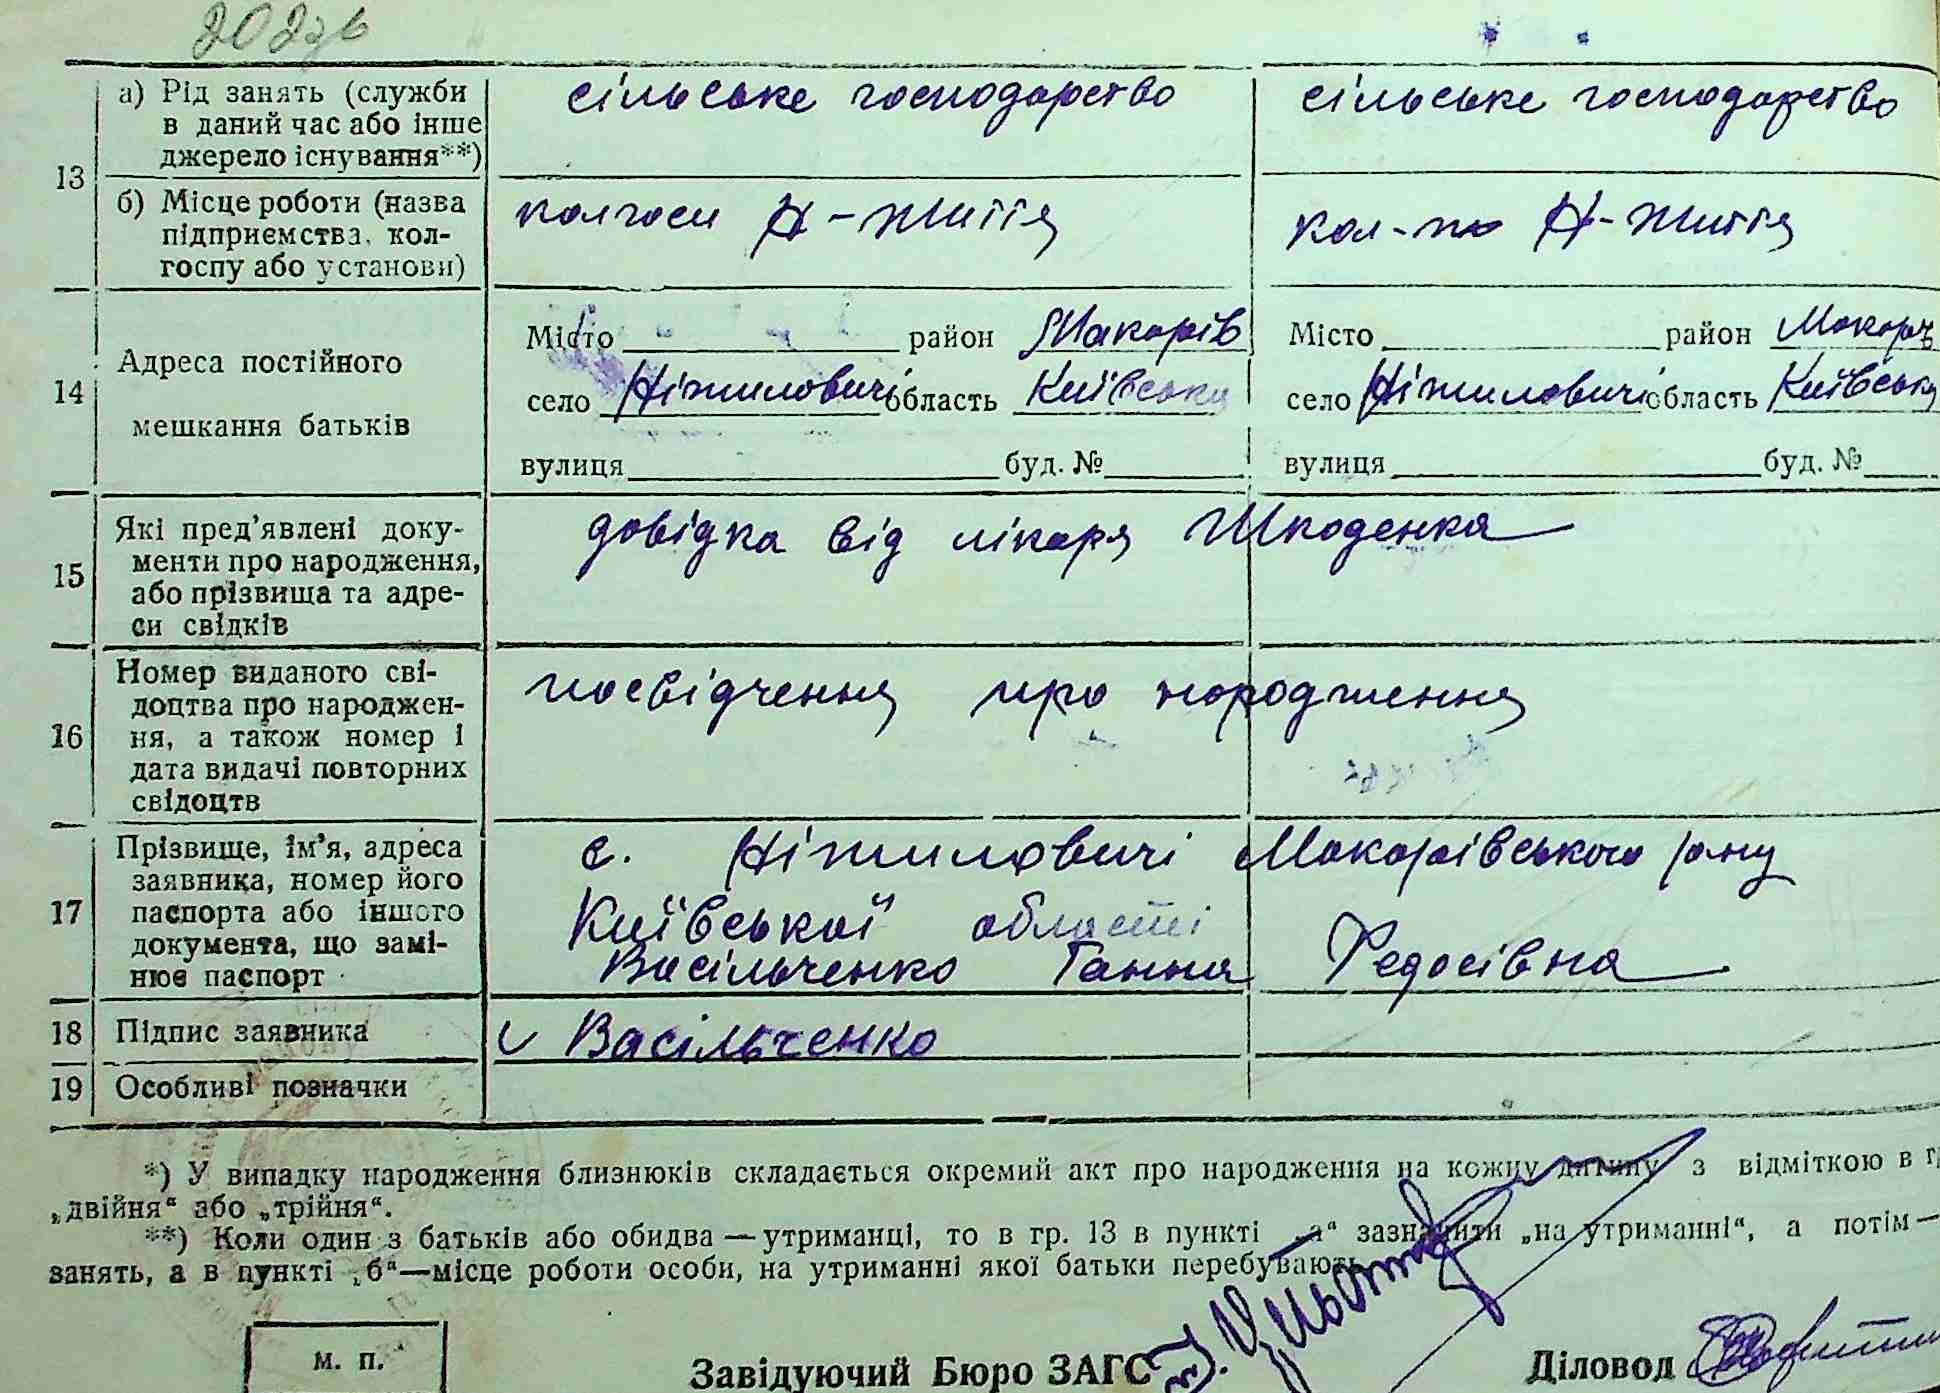 а) Рід занять (служби в даний час або інше джерело існування**)
сільське господарство
сільське господарство
13
б) Місце роботи (назва підприємства, колгоспу або установи)
колгосп Н-життя
Н-життя
14
Адреса постійного мешкання батьків
Місто район Макарів
село Ніжиловичі область Київська
вулиця буд. №
Місто район
село Ніжиловичі область Київська
вулиця буд. №
15
Які пред'явлені документи про народження, або прізвища та адреси свідків
довідка від лікаря Шкоденка
16
Номер виданого свідоцтва про народження, а також номер і дата видачі повторних свідоцтв
посвідчення про народження
17
Прізвище, ім'я, адреса заявника, номер його паспорта або іншого документа, що замінює паспорт
с. Ніжиловичі Макарівського р-ну
Київської області
Васільченко Ганна Федосівна
18 Підпис заявника
Васільченко
19 Особливі позначки
*) У випадку народження близнюків складається окремий акт про народження на кожну дитину з відміткою в
„двійня“ або „трійня“.
**) Коли один з батьків або обидва — утриманці, то в гр. 13 в пункті „а“ зазначити „на утриманні“, а потім —
занять, а в пункті „б“—місце роботи особи, на утриманні якої батьки перебувають.
м. п.
Завідуючий Бюро ЗАГС
Діловод